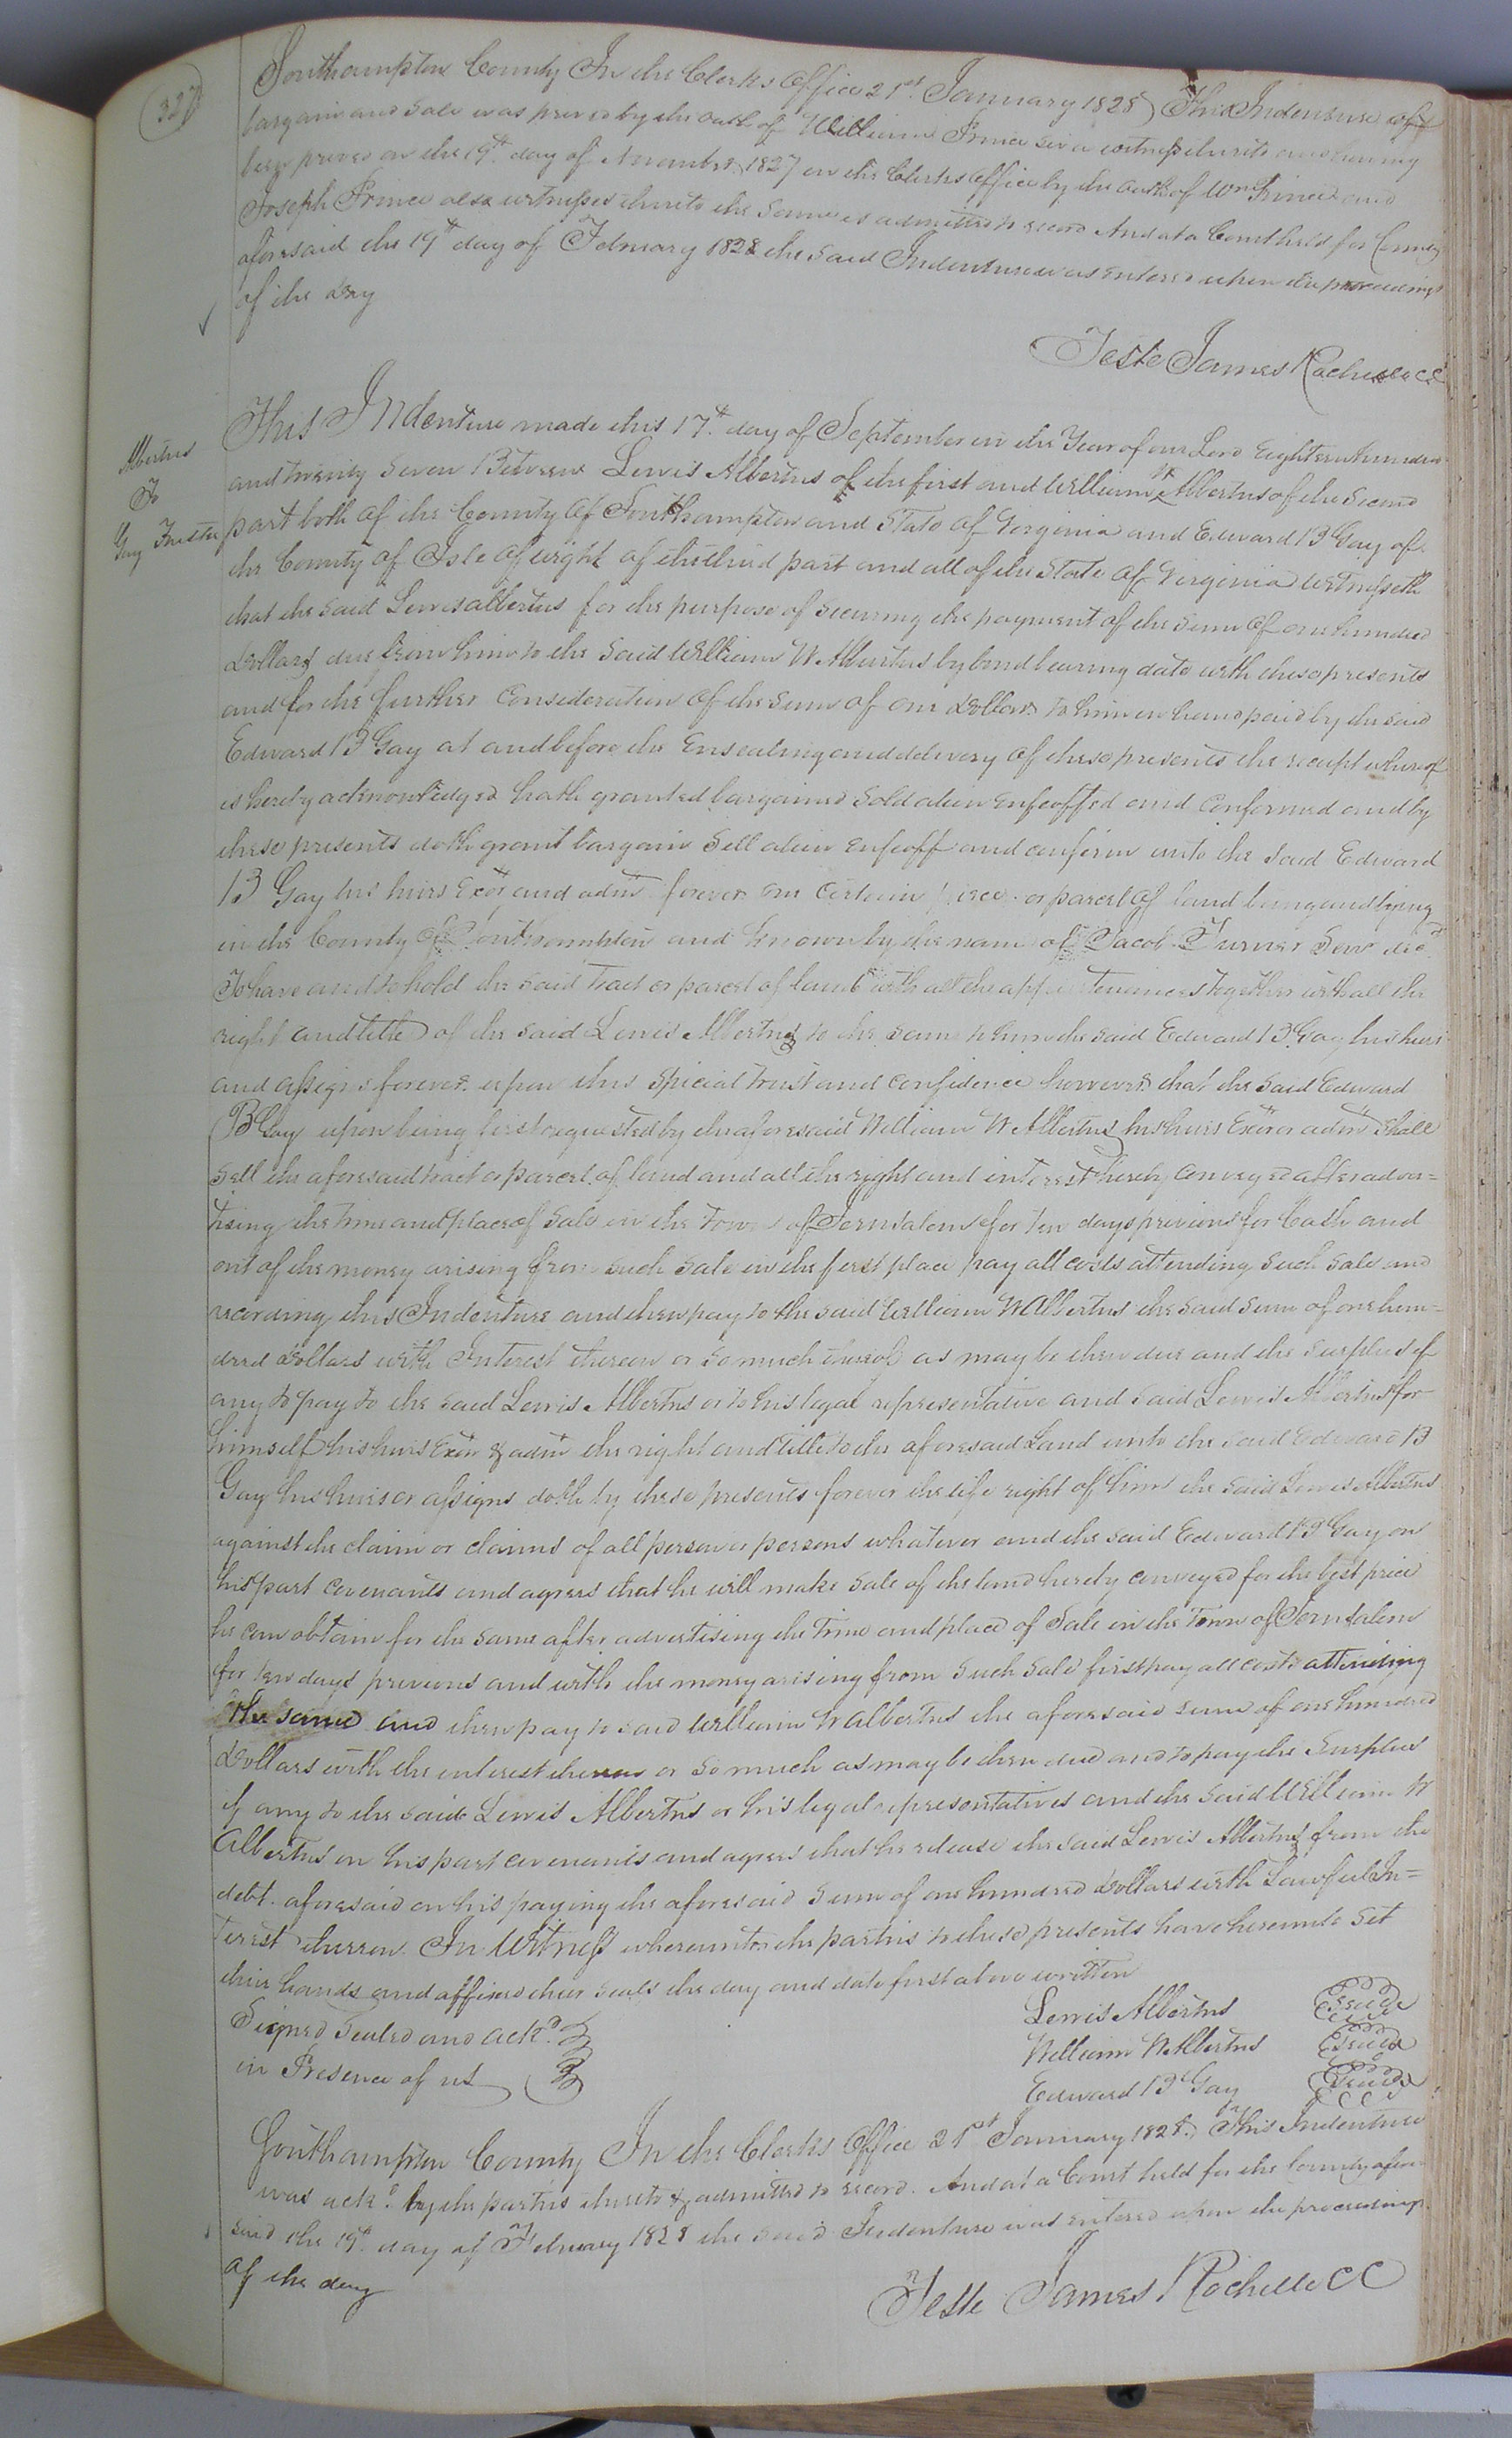 327
Southampton County In the Clerks Office 21st January 1828 This Indenture of
bargain and Sale was proved by the oath of William Prince Senr a witness thereto and having
been proved on the 19th day of November 1827 in the Clerks office by the oath of Wm Prince and
Joseph Prince also witnesses thereto the same is admitted to record And at a Court held for County
aforesaid the 19th day of February 1828 the said Indenture was entered upon the proceedings
of the day
Teste James Rochelle CC
Albertus
To
Gay Trustee
This Indenture made this 17th day of September in the Year of our Lord Eighteen hundred
and twenty Seven Between Lewis Albertus of the first and William W Albertus of the Second
part both of the County of Southampton and State of Virginia and Edward B Gay of
the County of Isle of wight of the third part and all of the State of Virginia Witnesseth
that the said Lewis albertus for the purpose of securing the payment of the sum of one hundred
Dollars due from him to the said William W Albertus by bond bearing date with these presents
and for the further Consideration of the sum of one dollar to him in hand paid by the said
Edward B Gay at and before the Ensealing and delivery of these presents the receipt whereof
is hereby acknowledged hath granted bargained Sold alien enfeoffed and Confirmed and by
these presents doth grant bargain Sell alien enfeoff and confirm unto the said Edward
B Gay his heirs Exors and adms forever one Certain piece or parcel of land being and lying
in the County of Southampton and known by the name of Jacob Turner Senr decd
To have and to hold the said tract or parcel of land with all the appertenances together with all the
right and title of the said Lewis Albertus to the same to him the said Edward B Gay his heirs
and assigns forever upon this Special trust and confidence however that the said Edward
B Gay upon being first requested by the aforesaid William W Albertus his heirs Exors or adms Shall
Sell the aforesaid tract or parcel of land and all the right and interest hereby Conveyed after adver=
tising the time and place of Sale in the Town of Jerusalem for ten days previous for Cash and
out of the money arising from such Sale in the first place pay all costs attending Such Sale and
recording this Indenture and then pay to the said William W Albertus the said Sum of one hun=
dred dollars with Interest thereon or so much thereof as may be then due and the Surplus if
any to pay to the said Lewis Albertus or to his legal representative and said Lewis Albertus for
himself his heirs Exors & adms the right and title to the aforesaid Land unto the said Edward B
Gay his heirs or assigns doth by these presents forever the life right of him the said Lewis Albertus
against the claim or claims of all person or persons whatever and the said Edward B Gay on
his part covenants and agrees that he will make Sale of the land hereby conveyed for the best price
he can obtain for the same after advertising the time and place of Sale in the Town of Jerusalem
for ten days previous and with the money arising from Such Sale first pay all costs attending
the same and then pay to said William W albertus the aforesaid sum of one hundred
Dollars with the interest thereon or so much as may be then due and to pay the Surplus
if any to the said Lewis Albertus or his legal representatives and the said William W
Albertus on his part covenants and agrees that he release the said Lewis Albertus from the
debt aforesaid on his paying the aforesaid Sum of one hundred dollars with Lawful In=
terest thereon. In Witness whereunto the parties to these presents have hereunto Set
their hands and affixed their Seals the day and date first above written
Signed Sealed and ackd
in Presence of us
Lewis Albertus Seal
William W Albertus Seal
Edward B Gay Seal
Southampton County In the Clerks Office 21st January 1828. This Indenture
was ackd by the parties thereto & admitted to record. And at a Court held for the County afore
said the 19th day of February 1828 the said Indenture was entered upon the proceedings
of the day
Teste James Rochelle CC